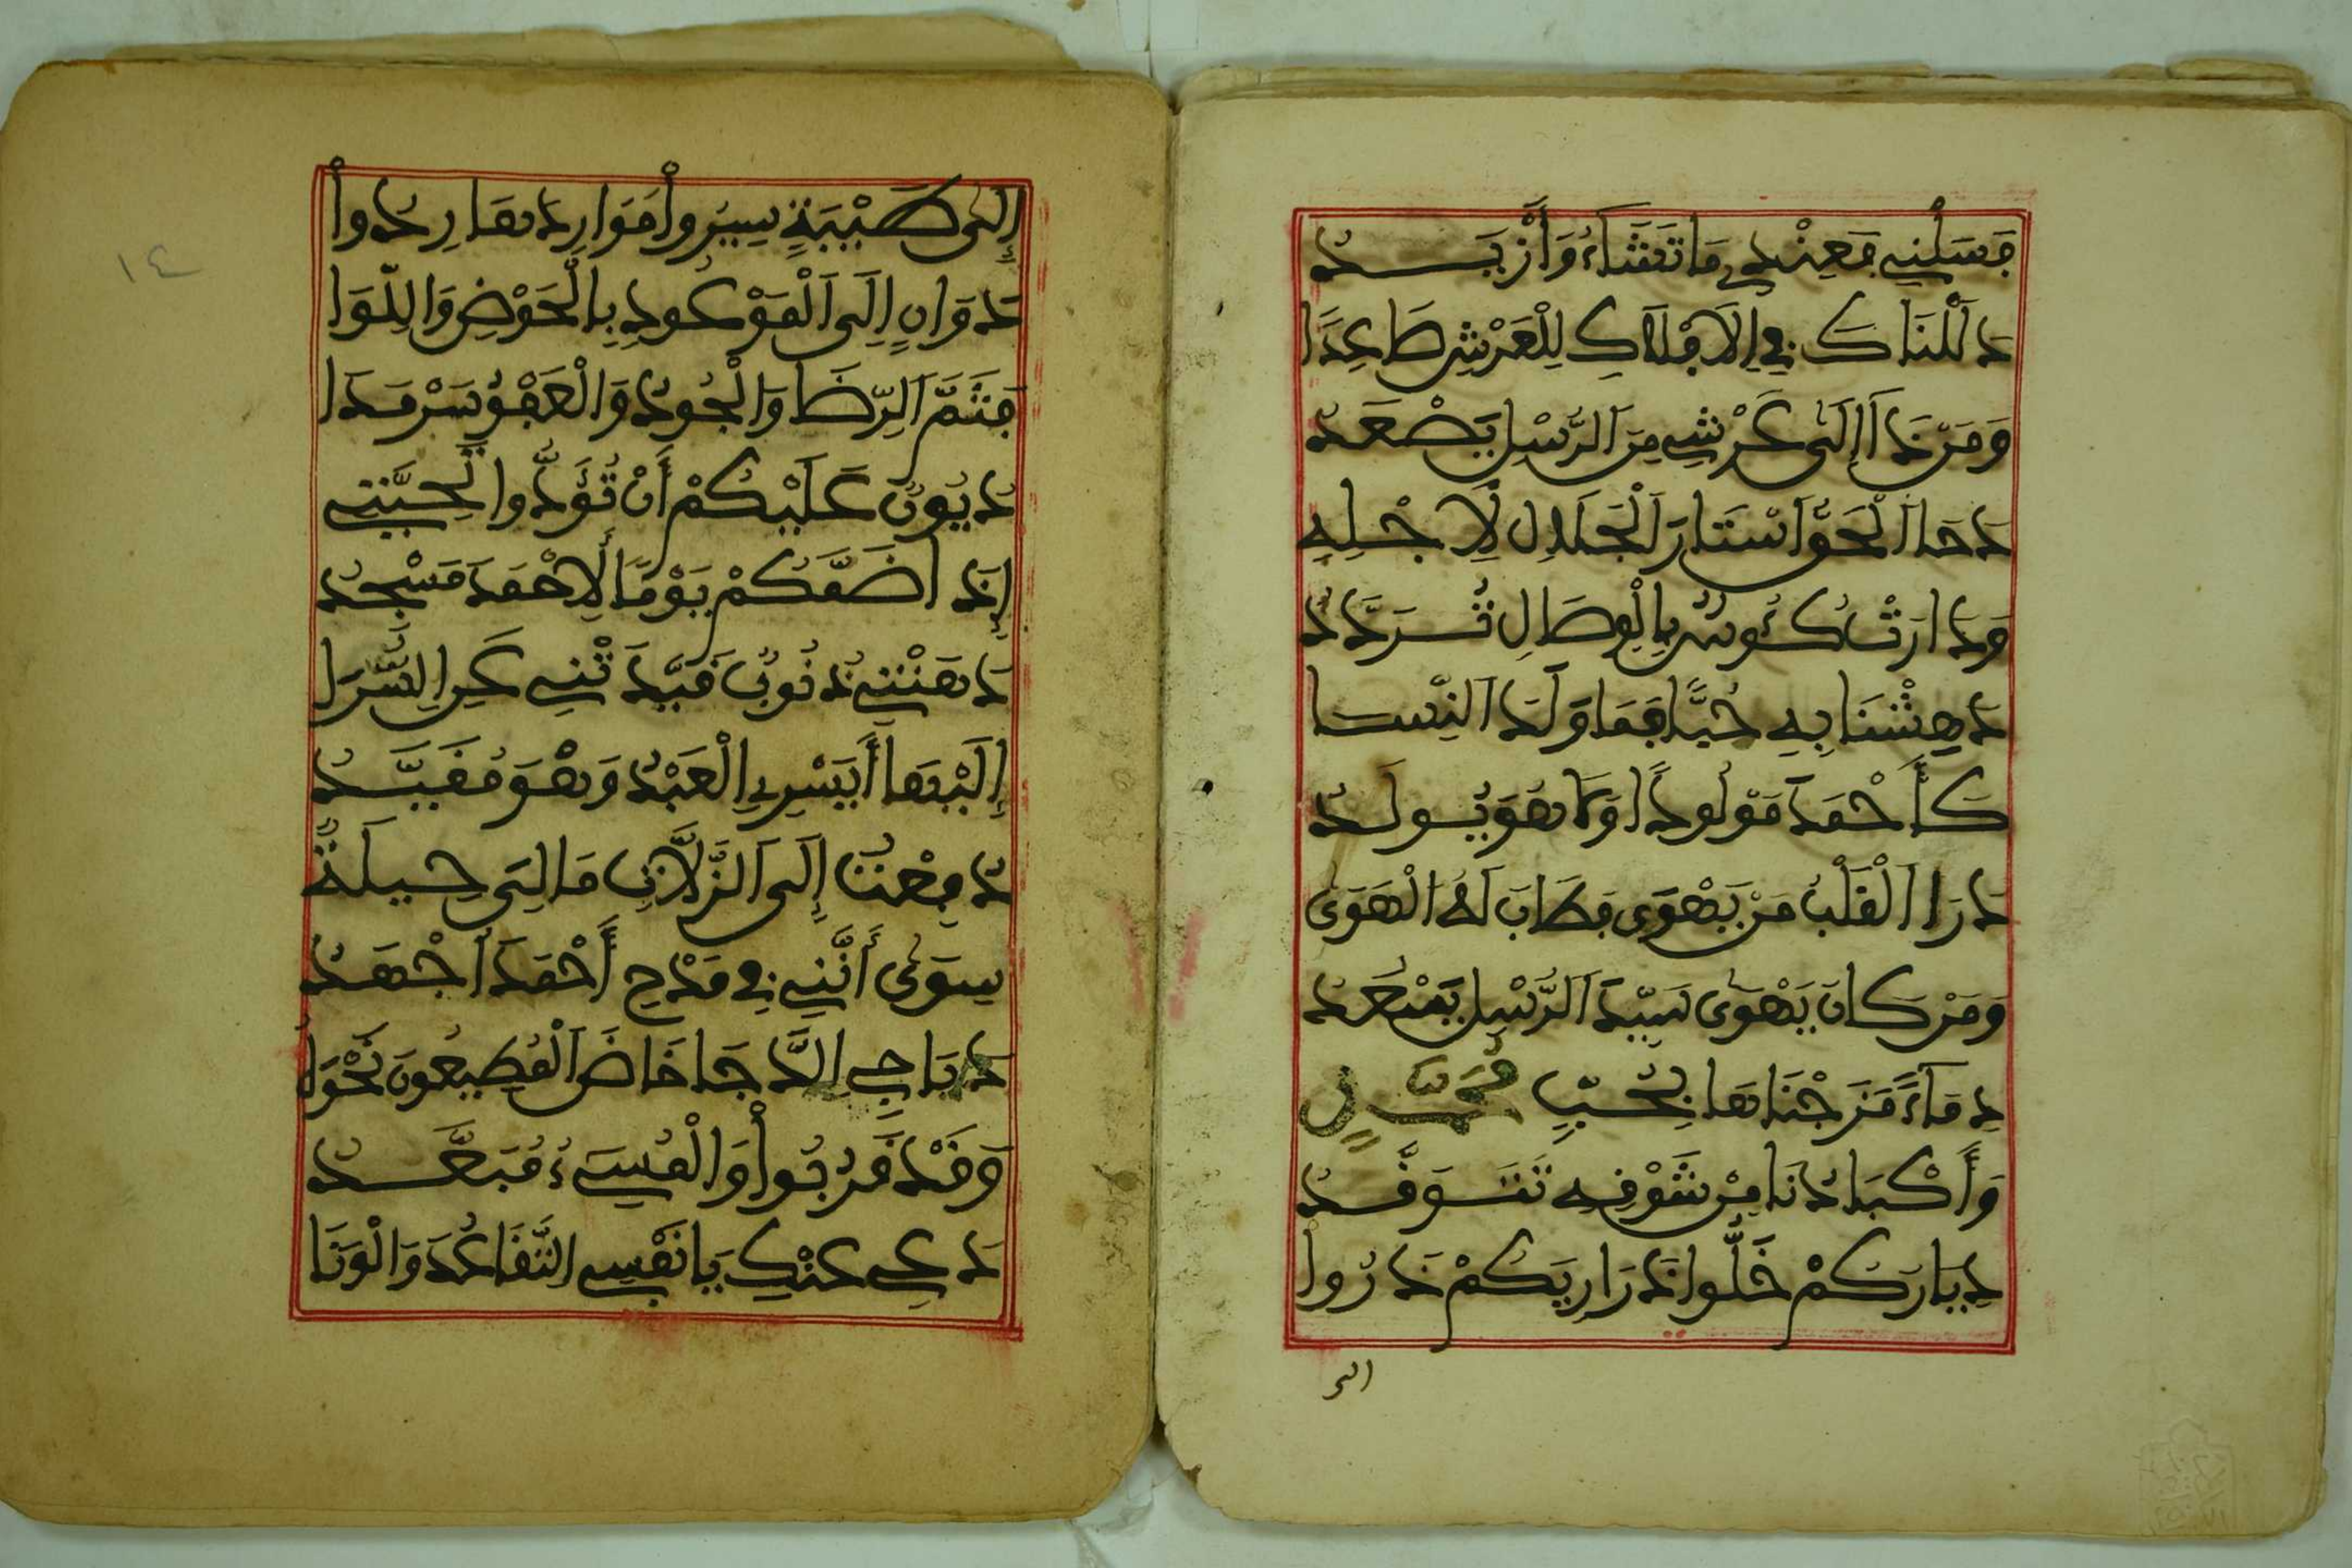 فَسَلْنِي فَعِنْدِي مَا تَشَاءُ وَأَزْيَدُ
دَلَلْنَاكَ فِي الَامْلَاكِ لِلْعَرْشِ صَاعِدَا
وَمَن ذَا إِلَى عَرْشِي مِنَ الرُّسْلِ يَصْعَدُ
دَحَا الْحَقُّ اسْتَارَ الْجَلَالِ لِأَجْلِهِ
وَدَارَتْ كُئُوسٌ بِالْوِصَالِ تُرَدَّدُ
دَهِشْنَا بِهِ حُبًّا فَمَا وَلَدَ النِّسَا
كَأَحْمَدَ مَوْلُودًا وَمَا هُوَ يُولَدُ
دَرَا الْقَلْبُ مَنْ يَهْوَى فَطَابَ لَهُ الْهَوَى
وَمَنْ كَانَ يَهْوَى سَيِّدَ الرُّسْلِ يَسْعَدُ
دِمَآءً مَزَجْنَاهَا بِحُبِّ مُحَمَّدٍ
وَأَكْبَادُنَا مِنْ شَوْقِهِ تَتَوَقَّدُ
دِيَارَكُمْ خَلُّوا ذَرَارِيَكُمْ ذَرُوا
إلى
إِلَى طَيْبَةٍ سِيرُوا مَوَارِدَهَا رِدُوا
دَوَانٍ إِلَى الْمَوْعُودِ بِالْحَوْضِ وَاللِّوَا
فَثَمَّ الرِّضَا وَالْجُودُ وَالْعَفْوُ سَرْمَدَا
دُيُونٌ عَلَيْكُمْ أَنْ تُؤَدُّوا تَحِيَّتِي
إِذَا ضَمَّكُمْ يَوْمًا لِأَحْمَدَ مَسْجِدُ
دَهَتْنِي ذُنُوبٌ قَيَّدَتْنِي عَنِ السُّرَى
إِلَيْهَا أَيَسْرِي الْعَبْدُ وَهْوَ مُقَيَّدُ
دُفِعْتُ إِلَى الزَّلَّاتِ مَا لِي حِيلَةٌ
سِوَى أَنَّنِي فِي مَدْحِ أَحْمَدَ أَجْهَدُ
دَيَاجِي الدَّجَا خَاضَ الْمُطِيعُونَ نَحْوَهُ
وَقَدْ قَرُبُوا وَالْمُسِيءُ مُبَعَّدُ
دَعِي عَنْكِ يَا نَفْسِي التَّقَاعُدَ وَالْوَنَا
١٤